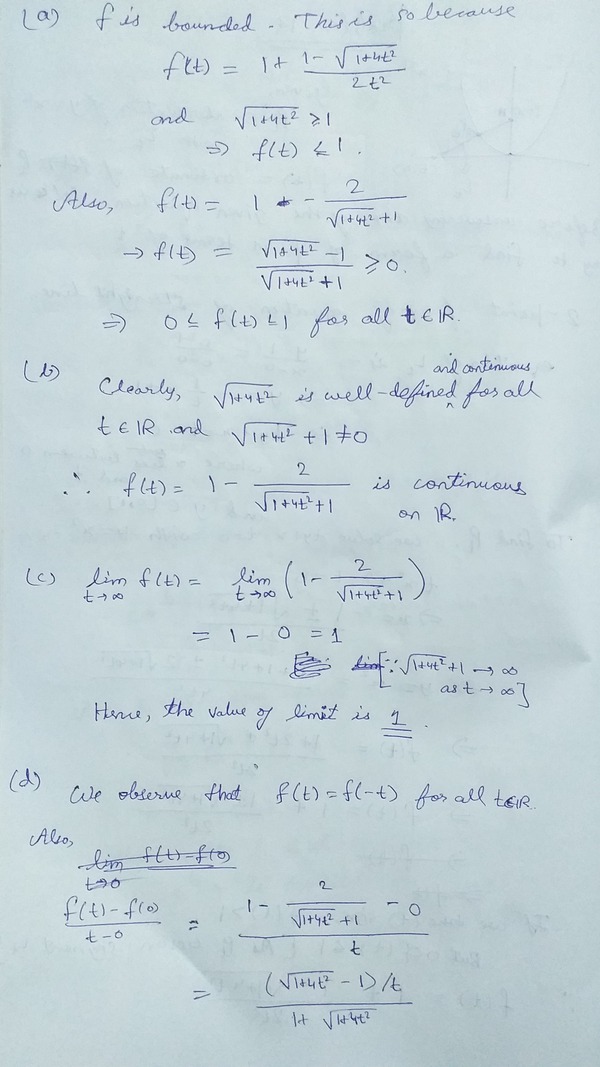 (a) f is bounded. This is so because
f(t) = 1 + (1 - √(1+4t²))/(2t²)
and √(1+4t²) ≥ 1
⇒ f(t) ≤ 1.
Also, f(t) = 1 - 2/(√(1+4t²) + 1)
→ f(t) = (√(1+4t²) - 1)/(√(1+4t²) + 1) ≥ 0.
⇒ 0 ≤ f(t) ≤ 1 for all t ∈ ℝ.
(b) Clearly, √(1+4t²) is well-defined and continuous for all
t ∈ ℝ and √(1+4t²) + 1 ≠ 0
∴ f(t) = 1 - 2/(√(1+4t²) + 1) is continuous
on ℝ.
(c) lim t→∞ f(t) = lim t→∞ (1 - 2/(√(1+4t²) + 1))
= 1 - 0 = 1
[∵ √(1+4t²) + 1 → ∞
as t → ∞]
Hence, the value of limit is 1.
(d) We observe that f(t) = f(-t) for all t ∈ ℝ.
Also,
lim t→0 f(t) - f(0)
(f(t) - f(0))/(t - 0) = (1 - 2/(√(1+4t²) + 1) - 0)/t
= ((√(1+4t²) - 1)/t)/(1 + √(1+4t²))